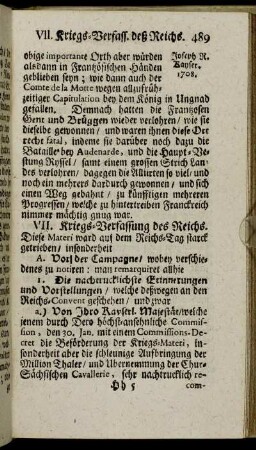 VII. Kriegs-Verfass. deß Reichs. 489
obige importante Orth aber würden
alsdann in Frantzösischen Händen
geblieben seyn; wie dann auch der
Comte de la Motte wegen allzufrüh-
zeitiger Capitulation bey dem König in Ungnad
gefallen. Demnach hatten die Frantzosen
Gent und Brüggen wieder verlohren/ wie sie
dieselbe gewonnen/ und waren ihnen diese Oer-
ter fatal, indeme sie darüber noch dazu die
Bataille bey Audenarde, und die Haupt-Ve-
stung Ryssel/ samt einem grossen Strich Lan-
des verlohren/ dagegen die Alliirten so viel/ und
noch ein mehrers dardurch gewonnen/ und sich
einen Weg gebahnt/ zu künfftigen mehreren
Progressen/ welche zu hintertreiben Franckreich
nimmer mächtig gnug war.
Joseph R.
Kayser.
1708.
VII. Kriegs-Verfassung des Reichs.
Diese Materi ward auf dem Reichs-Tag starck
getrieben/ insonderheit
A. Vor der Campagne/ wobey verschie-
denes zu notiren: man remarquiret allhie
1. Die nachdrucklichste Erinnerungen
und Vorstellungen/ welche deßwegen an den
Reichs-Convent geschehen/ und zwar
a.) Von Ihro Kayserl. Majestät/ welche
jenem durch Dero höchst-ansehnliche Commis-
sion, den 30. Jan. mit einem Commissions-De-
cret die Beförderung der Kriegs-Materi, in-
sonderheit aber die schleunige Aufbringung der
Million Thaler/ und Ubernemmung der Chur-
Sächsischen Cavallerie, sehr nachtrucklich re-
Hh 5
com-